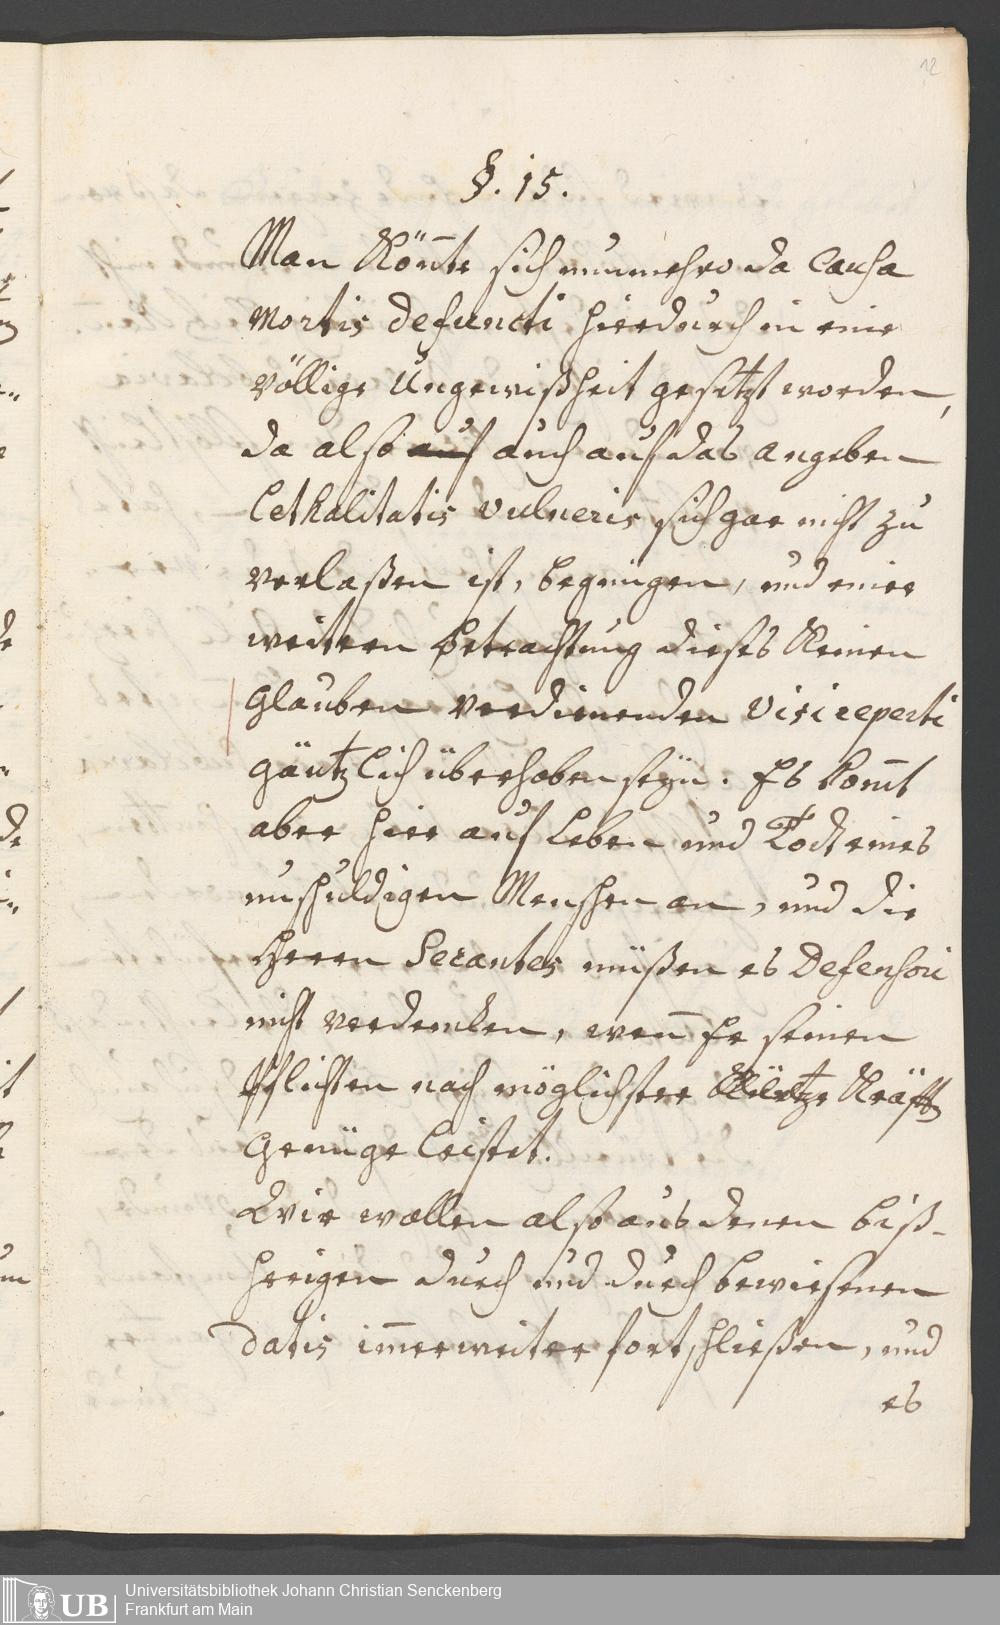 12
§. 15.
Man Kön̄te sich nunmehro da Causa
mortis defuncti hierdurch in eine
völlige Ungewißheit gesetzt worden,
da also auf auch auf das angeben
lethalitatis vulneris sich gar nicht zu
verlaßen ist, begnügen, und einer
weitern betrachtung dieses Keinen
Glauben verdienenden visi reperti
gäntzlich überhoben seyn. Es kom̄t
aber hier auf Leben und Todt eines
unschuldigen Menschen an, und die
Herrn Secantes müßen es Defensori
nicht verdencken, wen̄ Er seinen
Pflichten nach möglichster Kräfft
Genüge leistet.
Wir wollen also aus denen biß-
herigen durch und durch bewiesenen
datis im̄er weiter fortschließen, und
es
UB
Universitätsbibliothek Johann Christian Senckenberg
Frankfurt am Main